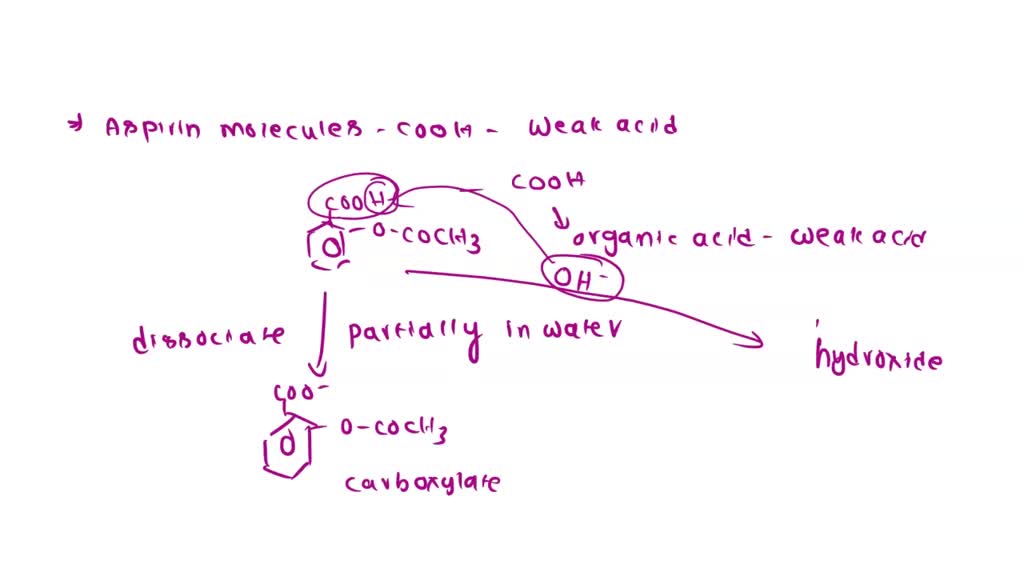 → Aspirin molecules - COOH - weak acid
COOH
COOH
O-COCH3
organic acid - weak acid
OH-
dissociate partially in water
hydroxide
COO-
O-COCH3
carboxylate